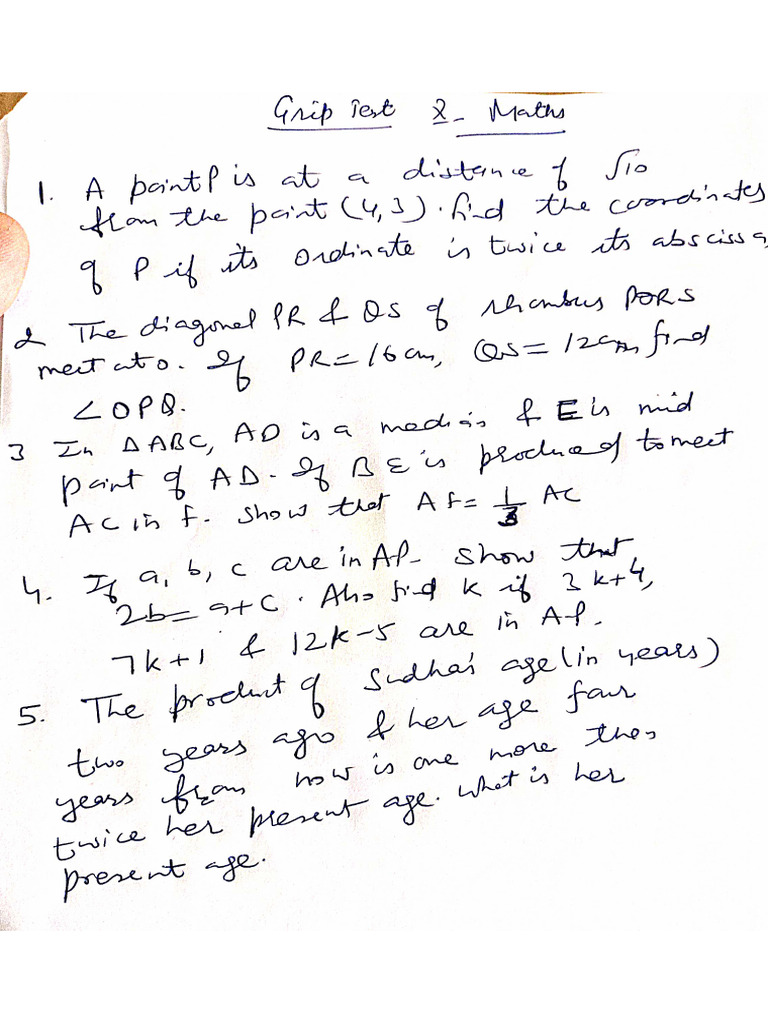 Grip Test 2 - Maths
1. A point P is at a distance of √10
from the point (4,3). find the coordinates
of P if its ordinate is twice its abscissa
2 The diagonal PR & QS of rhombus PQRS
meet at O. If PR = 16 cm, QS = 12 cm, find
∠OPQ.
3 In △ABC, AD is a median & E is mid
point of AD. If BE is produced to meet
AC in F. Show that AF = 1/3 AC
4. If a, b, c are in AP. Show that
2b = a+c. Also find k if 3k+4,
7k+1 & 12k-5 are in A.P.
5. The product of Sudha's age (in years)
two years ago & her age four
years from now is one more than
twice her present age. What is her
present age.